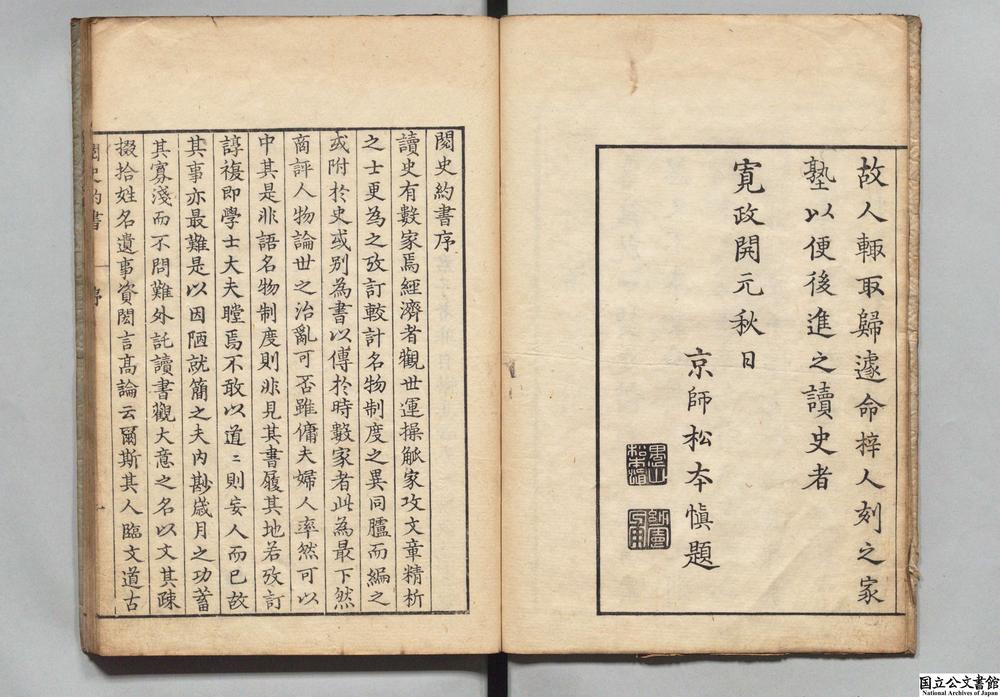 故人輙取歸遽命梓人刻之家
塾以便後進之讀史者
寛政開元秋日
京師松本愼題
閲史約書序
讀史有數家焉經濟者觀世運操觚家攻文章精析
之士更為之攷訂較計名物制度之異同臚而編之
或附於史或别為書以傳於時數家者此為最下然
商評人物論世之治亂可否雖傭夫婦人率然可以
中其是非語名物制度則非見其書履其地若攷訂
諄複即學士大夫瞠焉不敢以道〻則妄人而已故
其事亦最難是以因陋就簡之夫内尠歳月之功蓄
其寡淺而不問難外託讀書觀大意之名以文其疎
掇拾姓名遺事資閎言髙論云爾斯其人臨文道古
閲史約書 序 一
国立公文書館
National Archives of Japan